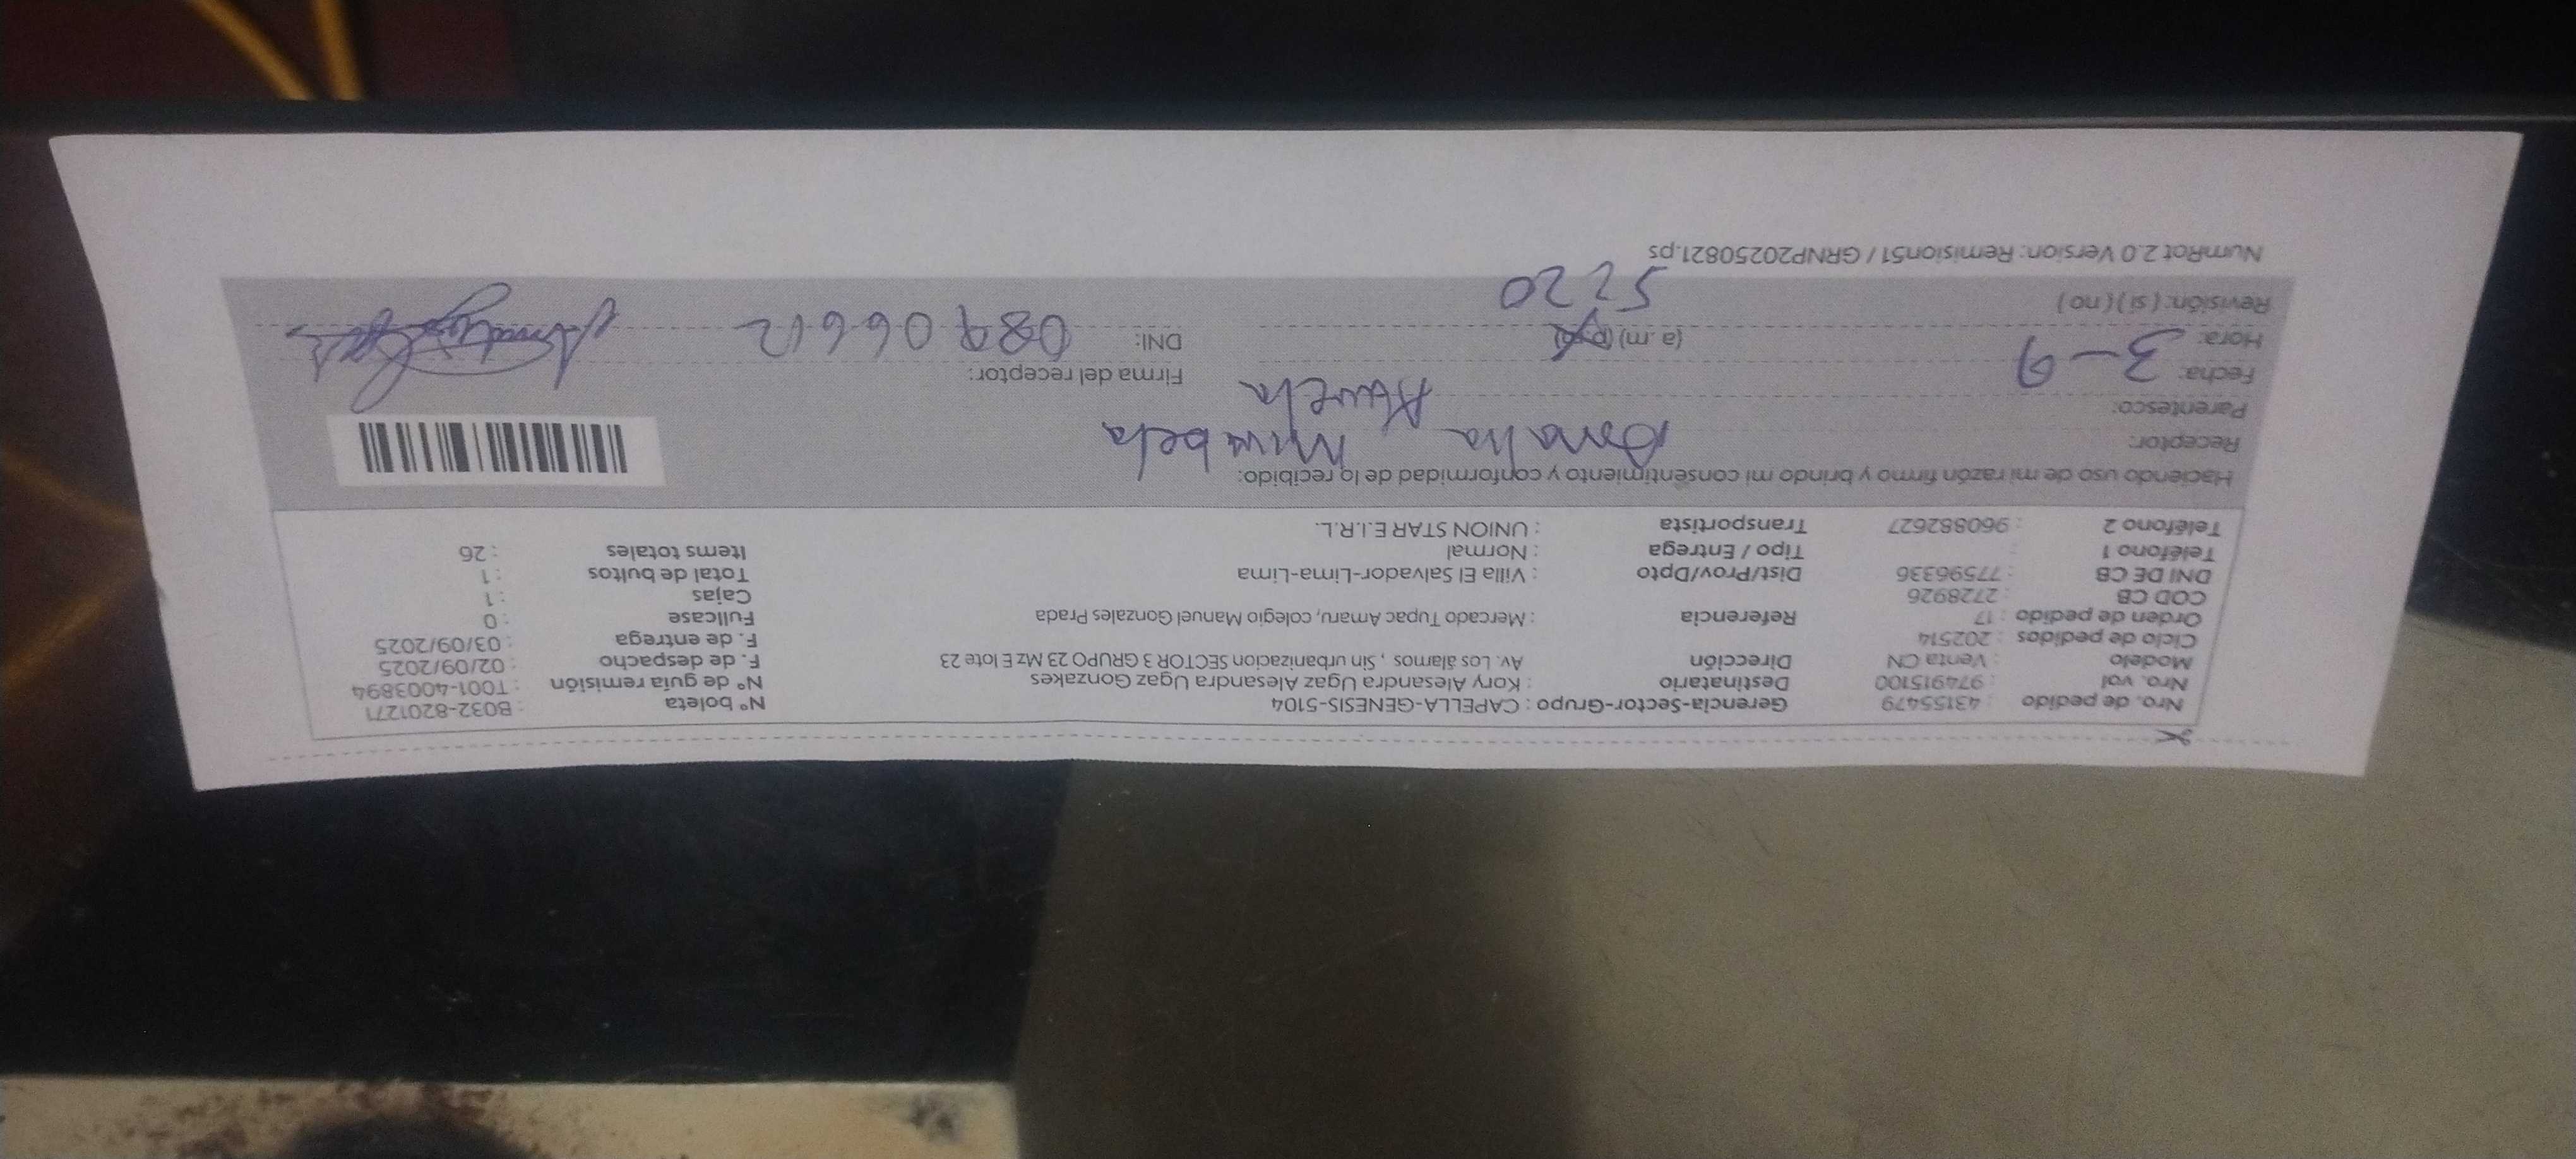 Nro. de pedido : 43155479 Gerencia-Sector-Grupo : CAPELLA-GENESIS-5104 N° boleta : B032-8201271
Nro. vol : 974915100 Destinatario : Kory Alesandra Ugaz Alesandra Ugaz Gonzakes N° de guía remisión : T001-4003894
Modelo : Venta CN Dirección Av. Los álamos , Sin urbanizacion SECTOR 3 GRUPO 23 Mz E lote 23 F. de despacho : 02/09/2025
Ciclo de pedidos : 202514 F. de entrega : 03/09/2025
Orden de pedido : 17 Referencia : Mercado Tupac Amaru, colegio Manuel Gonzales Prada Fullcase : 0
COD CB : 2728926 Cajas : 1
DNI DE CB : 77596336 Dist/Prov/Dpto : Villa El Salvador-Lima-Lima Total de bultos : 1
Teléfono 1 : Tipo / Entrega : Normal Items totales : 26
Teléfono 2 : 960882627 Transportista : UNION STAR E.I.R.L.
Haciendo uso de mi razón firmo y brindo mi consentimiento y conformidad de lo recibido:
Receptor: Amalia Mirabela
Parentesco: Abuela
Fecha: 3-9 Firma del receptor:
Hora: (a.m) (p.m) DNI: 08906612
Revisión: ( si ) ( no ) 5:20
NumRot 2.0 Version: Remision51 / GRNP20250821.ps